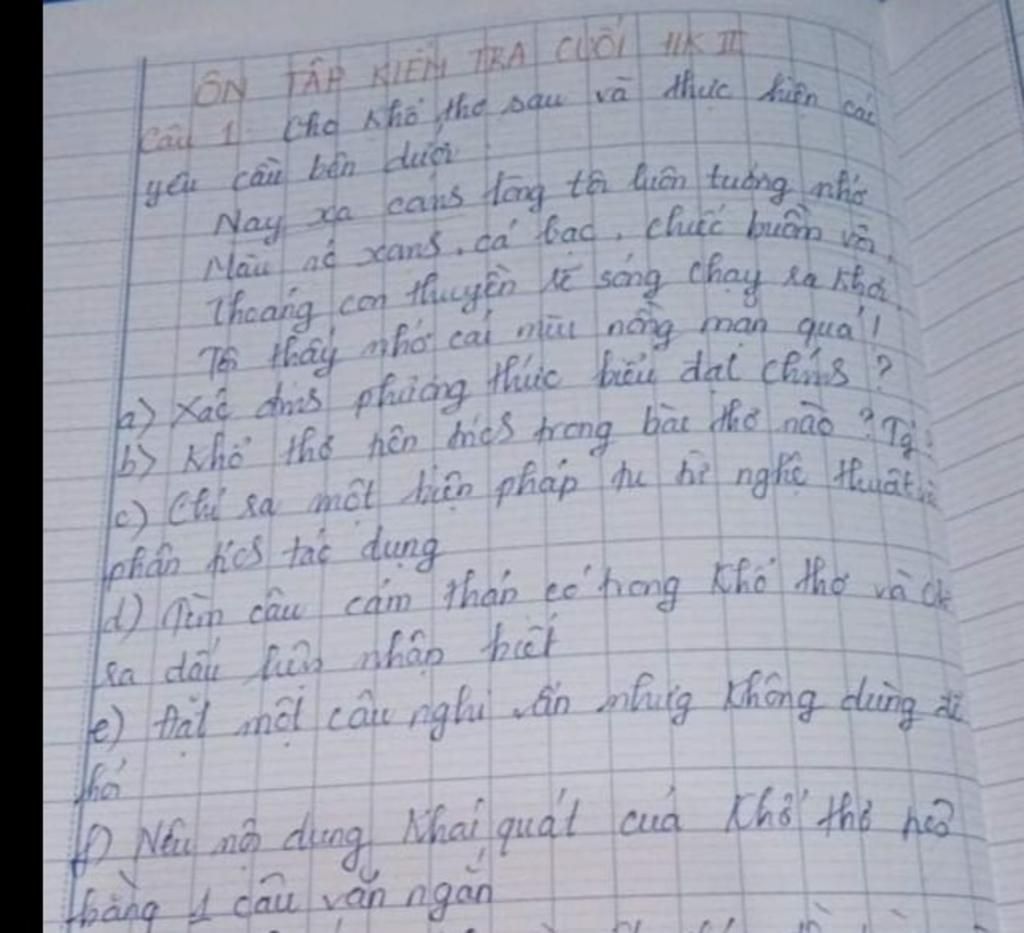 ÔN TẬP KIỂM TRA CUỐI HK II
Câu 1: Cho khổ thơ sau và thực hiện các
yêu cầu bên dưới
Nay xa cans lòng tôi luôn tưởng nhớ
Màu nc xans, cá bạc, chiếc buồm vôi,
Thoáng con thuyền rẽ sóng chạy ra khơi,
Tôi thấy nhớ cái mùi nồng mặn quá!
a) Xác địns phương thức biểu đạt chíns?
b) Khổ thơ trên trics trong bài thơ nào? Tg?
c) Chỉ ra một biện pháp tu từ nghệ thuật và
phân tícs tác dụng
d) Tìm câu cảm thán có trong khổ thơ và
ra dấu hiệu nhận biết
e) Đặt một câu nghi vấn nhưng không dùng để
hỏi
f) Nêu nội dung khái quát của khổ thơ trên
bằng 1 câu văn ngắn